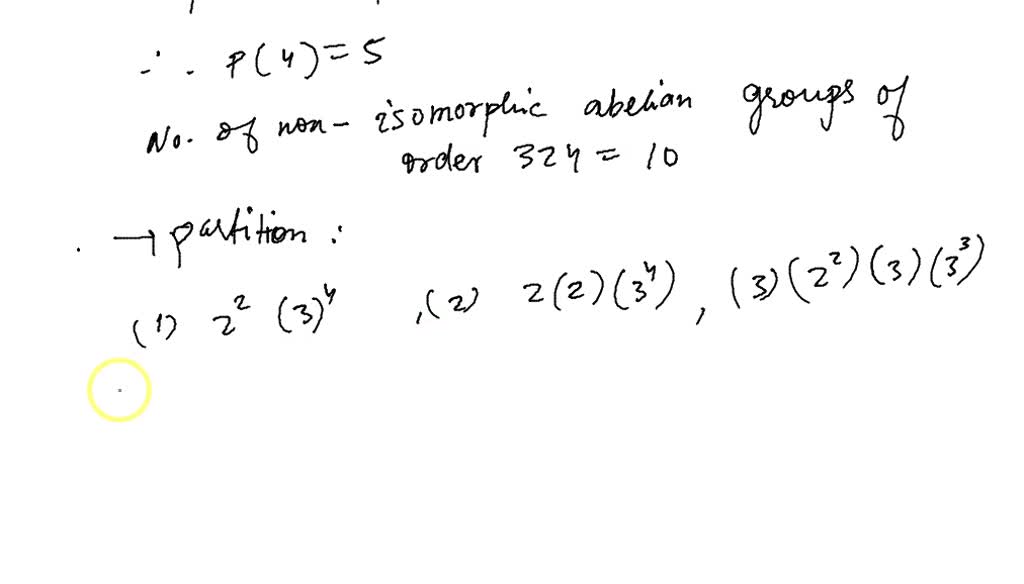 ∴ P(4) = 5
No. of non-isomorphic abelian groups of
order 324 = 10
. → partition :
(1) 2² (3)⁴ , (2) 2(2)(3⁴) , (3)(2²)(3)(3³)